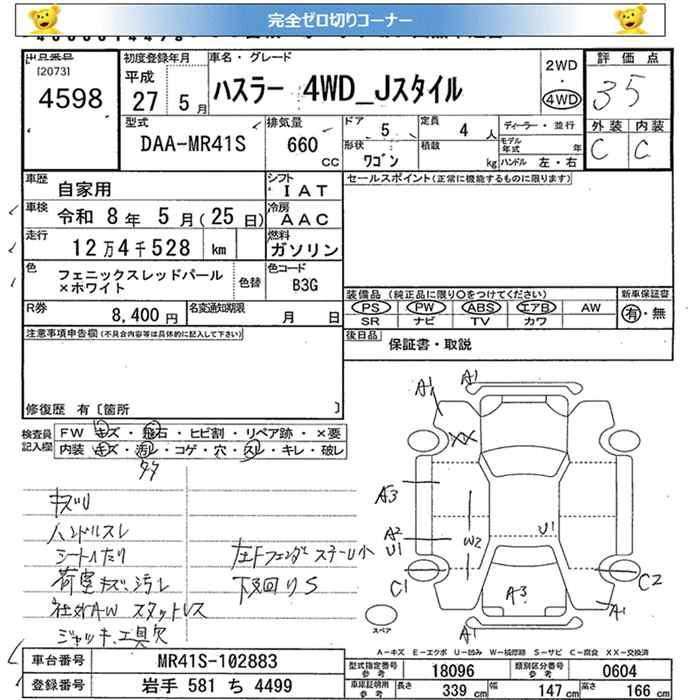 完全ゼロ切りコーナー
出品番号
[2073]
4598
初度登録年月
平成
27 5月
車名・グレード
ハスラー 4WD_Jスタイル
2WD
・
4WD
評価点
3.5
外装 内装
C C
型式
DAA-MR41S
排気量
660
CC
ドア
5
定員
4人
形状
ワゴン
積載
kg
ディーラー・並行
モデル年式 年
ハンドル 左・右
車歴
自家用
シフト
IAT
セールスポイント(正常に機能するものに限ります)
車検
令和 8年 5月(25日)
冷房
AAC
走行
12万4千528 km
燃料
ガソリン
色
フェニックスレッドパール
×ホワイト
色替
色コード
B3G
装備品 (純正品に限り○をつけてください)
PS PW ABS エアB AW
SR ナビ TV カワ
新車保証書
有・無
R券
8,400円
名変通知期限
月 日
後日品
保証書・取説
注意事項申告欄(不具合内容等は具体的に記入して下さい)
修復歴 有〔箇所 〕
検査員
記入欄
FW キズ・飛石・ヒビ割・リペア跡・×要
内装 キズ・汚レ・コゲ・穴・スレ・キレ・破レ
多々
キズU
ハンドルスレ
シートへたり
荷室キズ、汚レ
社外AW スタッドレス
ジャッキ、工具欠
左Fフェンダーステー凹小
下回りS
A1
A1
XX
A3
A2
U1
W2
U1
C1
C2
A3
A1
A1
スペア
A―キズ E―エクボ U―凹み W―補修跡 S―サビ C―腐食 XX―交換済
車台番号
MR41S-102883
登録番号
岩手 581 ち 4499
型式指定番号
参考
18096
類別区分番号
参考
0604
車庫証明用
参考
長さ
339 cm
幅
147 cm
高さ
166 cm